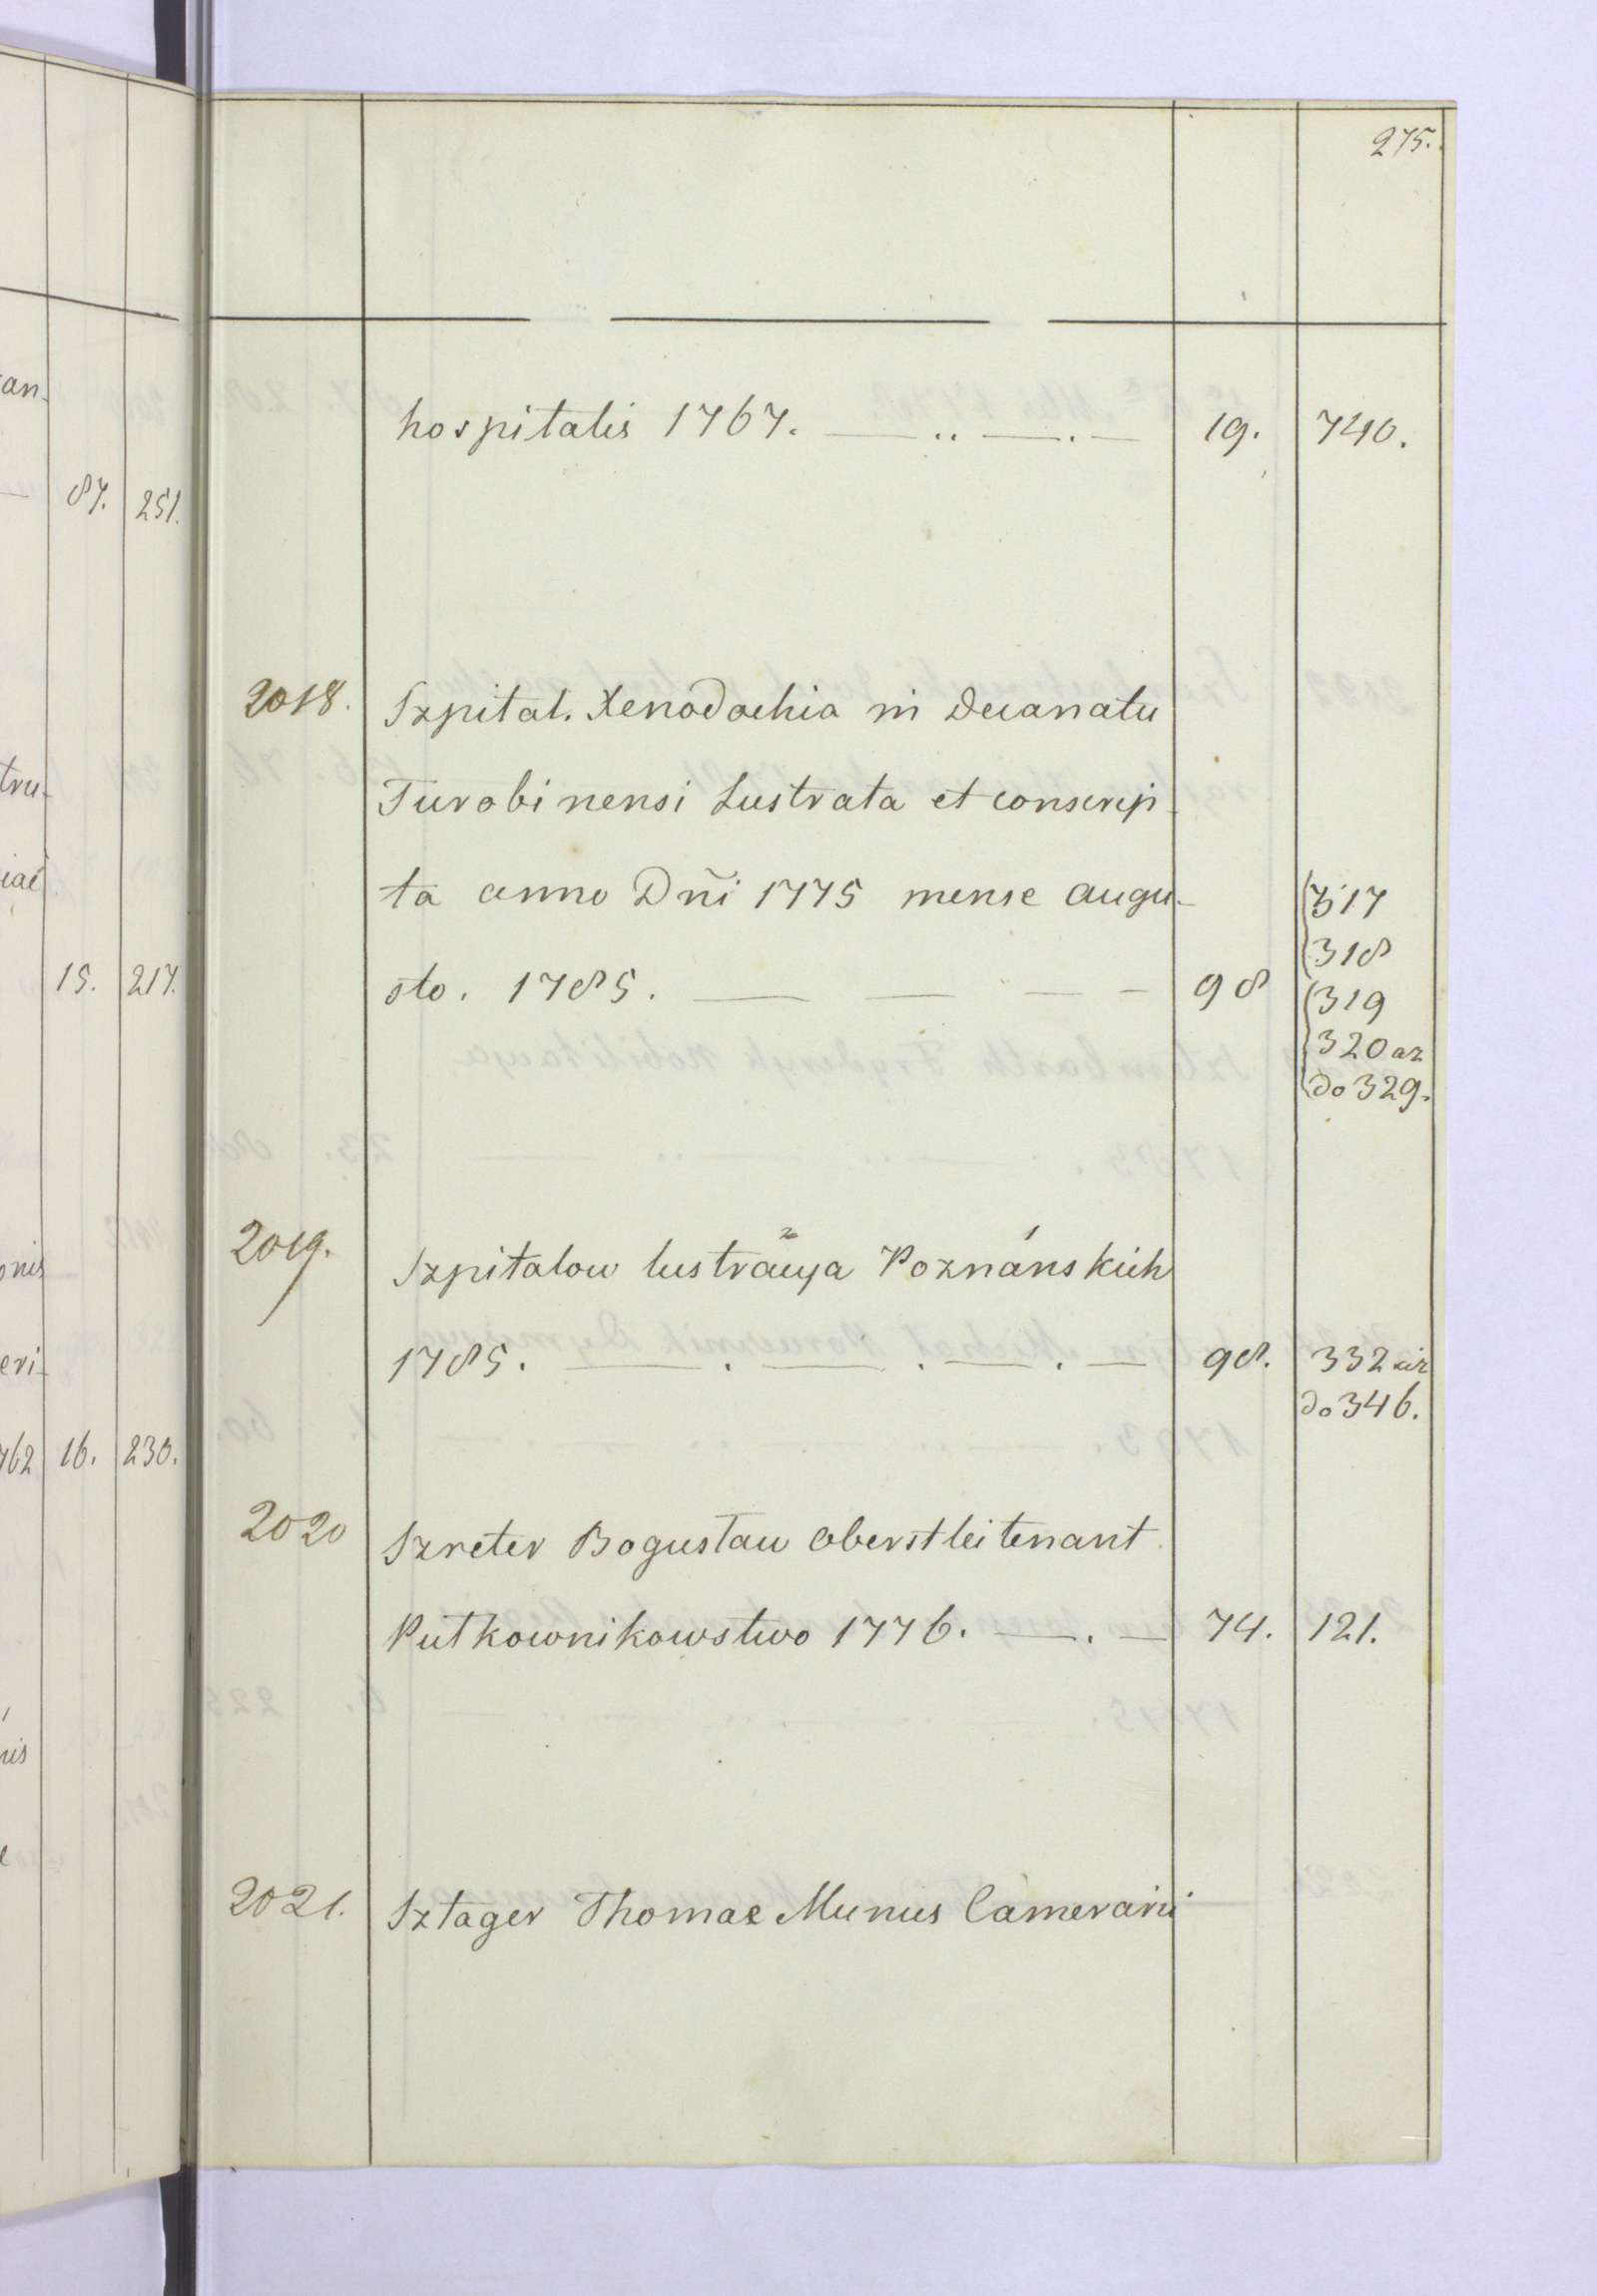 275.
hospitalis 1767. 19. 740.
2018. Szpital. Xenodochia in Decanatu
Turobinensi Lustrata et conscrip-
ta anno Dñi 1775 mense augu-
sto. 1785. 98
317
318
319
320 az
do 329.
2019. Szpitalow lustracya Poznánskich
1785. 98. 332 az
do 346.
2020 Szreter Bogusław Oberstleitenant
Pułkownikowstwo 1776. 74. 121.
2021. Sztager Thomae Munus Camerarii
an-
87. 251.
tru-
iae
15. 217.
onis
eri-
762 16. 230.